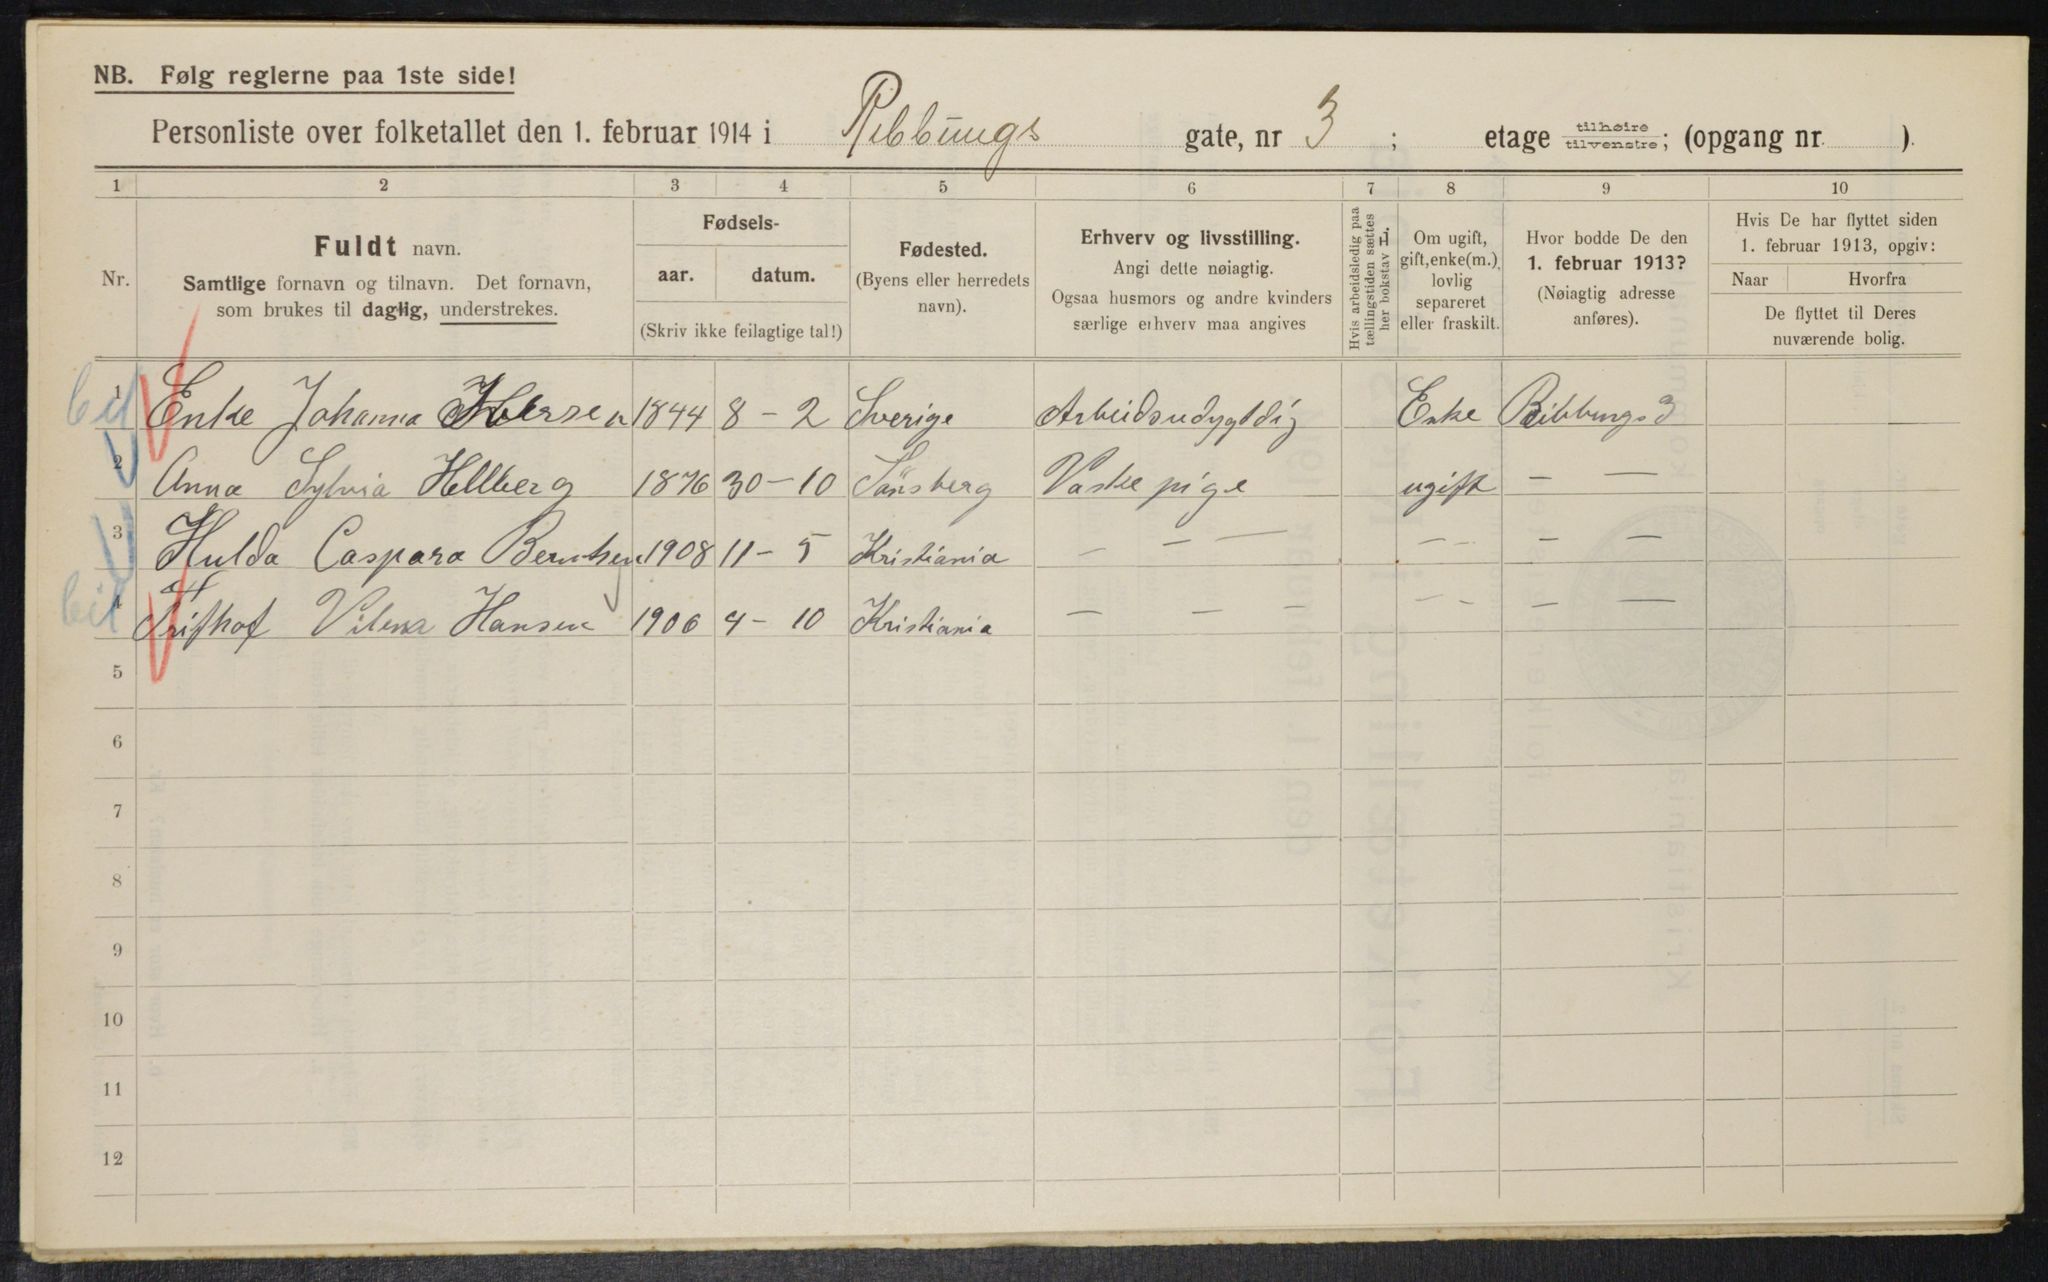 NB. Følg reglerne paa 1ste side!
Personliste over folketallet den 1. februar 1914 i Ribbungs gate, nr 3 ; etage tilhøire tilvenstre; (opgang nr. ).
1 2 3 4 5 6 7 8 9 10
Nr.
Fuldt navn.
Samtlige fornavn og tilnavn. Det fornavn,
som brukes til daglig, understrekes.
Fødsels-
aar. datum.
(Skriv ikke feilagtige tal!)
Fødested.
(Byens eller herredets
navn).
Erhverv og livsstilling.
Angi dette nøiagtig.
Ogsaa husmors og andre kvinders
særlige erhverv maa angives
Hvis arbeidsledig paa
tællingstiden sættes
her bokstav L.
Om ugift,
gift, enke(m.),
lovlig
separeret
eller fraskilt.
Hvor bodde De den
1. februar 1913?
(Nøiagtig adresse
anføres).
Hvis De har flyttet siden
1. februar 1913, opgiv:
Naar Hvorfra
De flyttet til Deres
nuværende bolig.
1 Enke Johanna 1844 8 - 2 Sverige Arbeidsudygtdig Enke Ribbungs 3
2 Anna Sylvia Hellberg 1876 30 - 10 Vaske pige ugift — —
3 Hulda Caspara Berntsen 1908 11 - 5 Kristiania — — — — — — —
4 Hansen 1906 4 - 10 Kristiania — — — — — — —
5
6
7
8
9
10
11
12